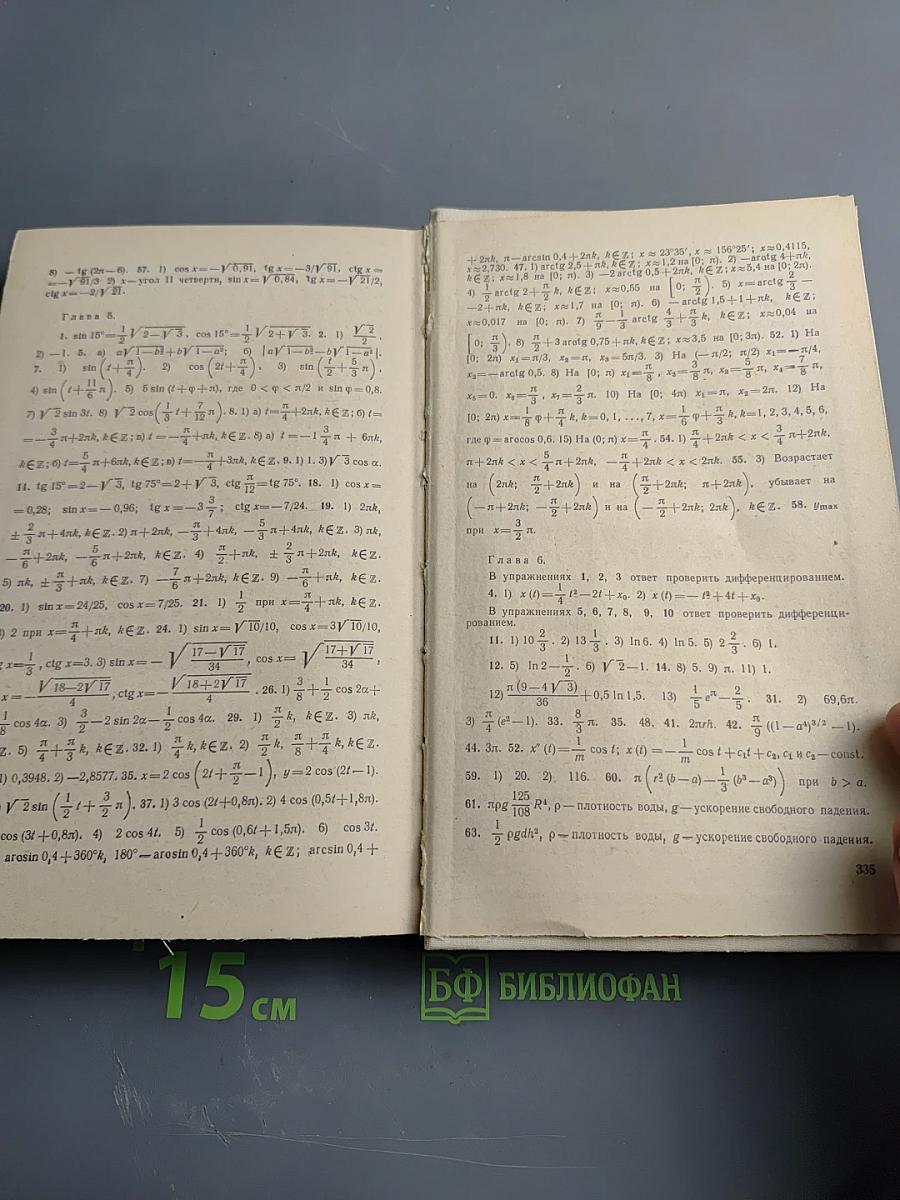 8) — tg (2π—6). 57. 1) cos x=—√0,91, tg x=—3/√91, ctg x=
=—√91/3 2) x—угол 11 четверти, sin x=√0,84, tg x=—√21/2,
ctg x=—2/√21.
Глава 5.
1. sin 15°=1/2 √(2—√3), cos 15°=1/2 √(2+√3). 2. 1) √2/2,
2) —1. 5. а) a√(1—b²)+b√(1—a²); б) |a√(1—b²)—b√(1—a²)|.
7. 1) sin(t+π/4). 2) cos(2t+π/4), 3) sin(t/2+5/3 π),
4) sin(t+11/6 π). 5) 5 sin (t+φ+π), где 0 < φ < π/2 и sin φ=0,8.
7) √2 sin 3t. 8) √2 cos(1/3 t+7/12 π). 8. 1) а) t=π/4+2πk, k∈Z; б) t=
=—3/4 π+2πk, k∈Z; в) t=—π/4+πk, k∈Z. 8) а) t=—1 3/4 π + 6πk,
k∈Z; б) t=5/4 π+6πk, k∈Z; в) t=—π/4+3πk, k∈Z. 9. 1) 1. 3) √3 cos α.
11. tg 15°=2—√3, tg 75°=2+√3, ctg π/12=tg 75°. 18. 1) cos x=
=0,28; sin x=—0,96; tg x=—3 3/7; ctg x=—7/24. 19. 1) 2πk,
±2/3 π+4πk, k∈Z. 2) π+2πk, —π/3+4πk, —5/3 π+4πk, k∈Z. 3) πk,
—π/6+2πk, —5/6 π+2πk, k∈Z. 4) π/2+πk, ±2/3 π+2πk, k∈Z.
5) πk, ±π/3+πk, k∈Z. 7) —7/6 π+2πk, k∈Z. 9) —π/6+πk, k∈Z.
20. 1) sin x=24/25, cos x=7/25. 21. 1) 1/2 при x=π/4+πk, k∈Z.
) 2 при x=π/4+πk, k∈Z. 24. 1) sin x=√10/10, cos x=3√10/10,
g x=1/3, ctg x=3. 3) sin x=—√((17—√17)/34), cos x=√((17+√17)/34),
x=—√(18—2√17)/4, ctg x=—√(18+2√17)/4. 26. 1) 3/8+1/2 cos 2α+
1/8 cos 4α. 3) 3/2—2 sin 2α—1/2 cos 4α. 29. 1) π/2 k, k∈Z. 3) πk,
Z. 5) π/4+π/3 k, k∈Z. 32. 1) π/4 k, k∈Z. 2) π/2 k, π/8+π/4 k, k∈Z.
1) 0,3948. 2) —2,8577. 35. x=2 cos(2t+π/2—1), y=2 cos (2t—1).
) √2 sin(1/2 t+3/2 π). 37. 1) 3 cos (2t+0,8π). 2) 4 cos (0,5t+1,8π).
cos (3t+0,8π). 4) 2 cos 4t. 5) 1/2 cos (0,6t+1,5π). 6) cos 3t.
arcsin 0,4+360°k, 180°—arcsin 0,4+360°k, k∈Z; arcsin 0,4+
+2πk, π—arcsin 0,4+2πk, k∈Z; x≈23°35′, x≈156°25′; x≈0,4115,
x≈2,730. 47. 1) arctg 2,5+πk, k∈Z; x≈1,2 на [0; π). 2) —arctg 4+πk,
k∈Z; x≈1,8 на [0; π). 3) —2 arctg 0,5+2πk, k∈Z; x≈5,4 на [0; 2π).
4) 1/2 arctg 2+π/2 k, k∈Z; x≈0,55 на [0; π/2). 5) x=arctg 2/3—
—2+πk, k∈Z; x≈1,7 на [0; π). 6) —arctg 1,5+1+πk, k∈Z;
x≈0,017 на [0; π). 7) π/9—1/3 arctg 4/3+π/3 k, k∈Z; x≈0,04 на
[0; π/3). 8) π/2+3 arctg 0,75+πk, k∈Z; x≈3,5 на [0; 3π). 52. 1) На
[0; 2π) x₁=π/3, x₂=π, x₃=5π/3. 3) На (—π/2; π/2) x₁=—π/4,
x₂=—arctg 0,5. 8) На [0; π) x₁=π/8, x₂=3/8 π, x₃=5/8 π, x₄=7/8 π,
x₅=0. x₆=π/3, x₇=2/3 π. 10) На [0; 4π) x₁=π, x₂=2π. 12) На
[0; 2π) x=1/8 φ+π/4 k, k=0, 1, ..., 7, x=1/6 φ+π/3 k, k=1, 2, 3, 4, 5, 6,
где φ=arccos 0,6. 15) На (0; π) x=π/4. 54. 1) π/4+2πk < x < 3/4 π+2πk,
π+2πk < x < 5/4 π+2πk, —π/4+2πk < x < 2πk. 55. 3) Возрастает
на (2πk; π/2+2πk) и на (π/2+2πk; π+2πk), убывает на
(—π+2πk; —π/2+2πk) и на (—π/2+2πk; 2πk), k∈Z. 58. yₘₐₓ
при x=3/2 π.
Глава 6.
В упражнениях 1, 2, 3 ответ проверить дифференцированием.
4. 1) x (t)=1/4 t²—2t+x₀. 2) x (t)=— t²+4t+x₀.
В упражнениях 5, 6, 7, 8, 9, 10 ответ проверить дифференци-
рованием.
11. 1) 10 2/3. 2) 13 1/3. 3) ln 6. 4) ln 5. 5) 2 2/3. 6) 1.
12. 5) ln 2—1/2. 6) √2—1. 14. 8) 5. 9) π. 11) 1.
12) π(9—4√3)/36+0,5 ln 1,5. 13) 1/5 eπ—2/5. 31. 2) 69,6π.
3) π/4 (e²—1). 33. 8/3 π. 35. 48. 41. 2πrh. 42. π/9 ((1—a⁴)³ᐟ²—1).
44. 3π. 52. x″ (t)=1/m cos t; x (t)=—1/m cos t+c₁t+c₂, c₁ и c₂—const.
59. 1) 20. 2) 116. 60. π(r²(b—a)—1/3 (b³—a³)) при b > a.
61. πρg 125/108 R⁴, ρ—плотность воды, g—ускорение свободного падения.
63. 1/2 ρgdh², ρ—плотность воды, g—ускорение свободного падения.
335
15 см
БФ БИБЛИОФАН